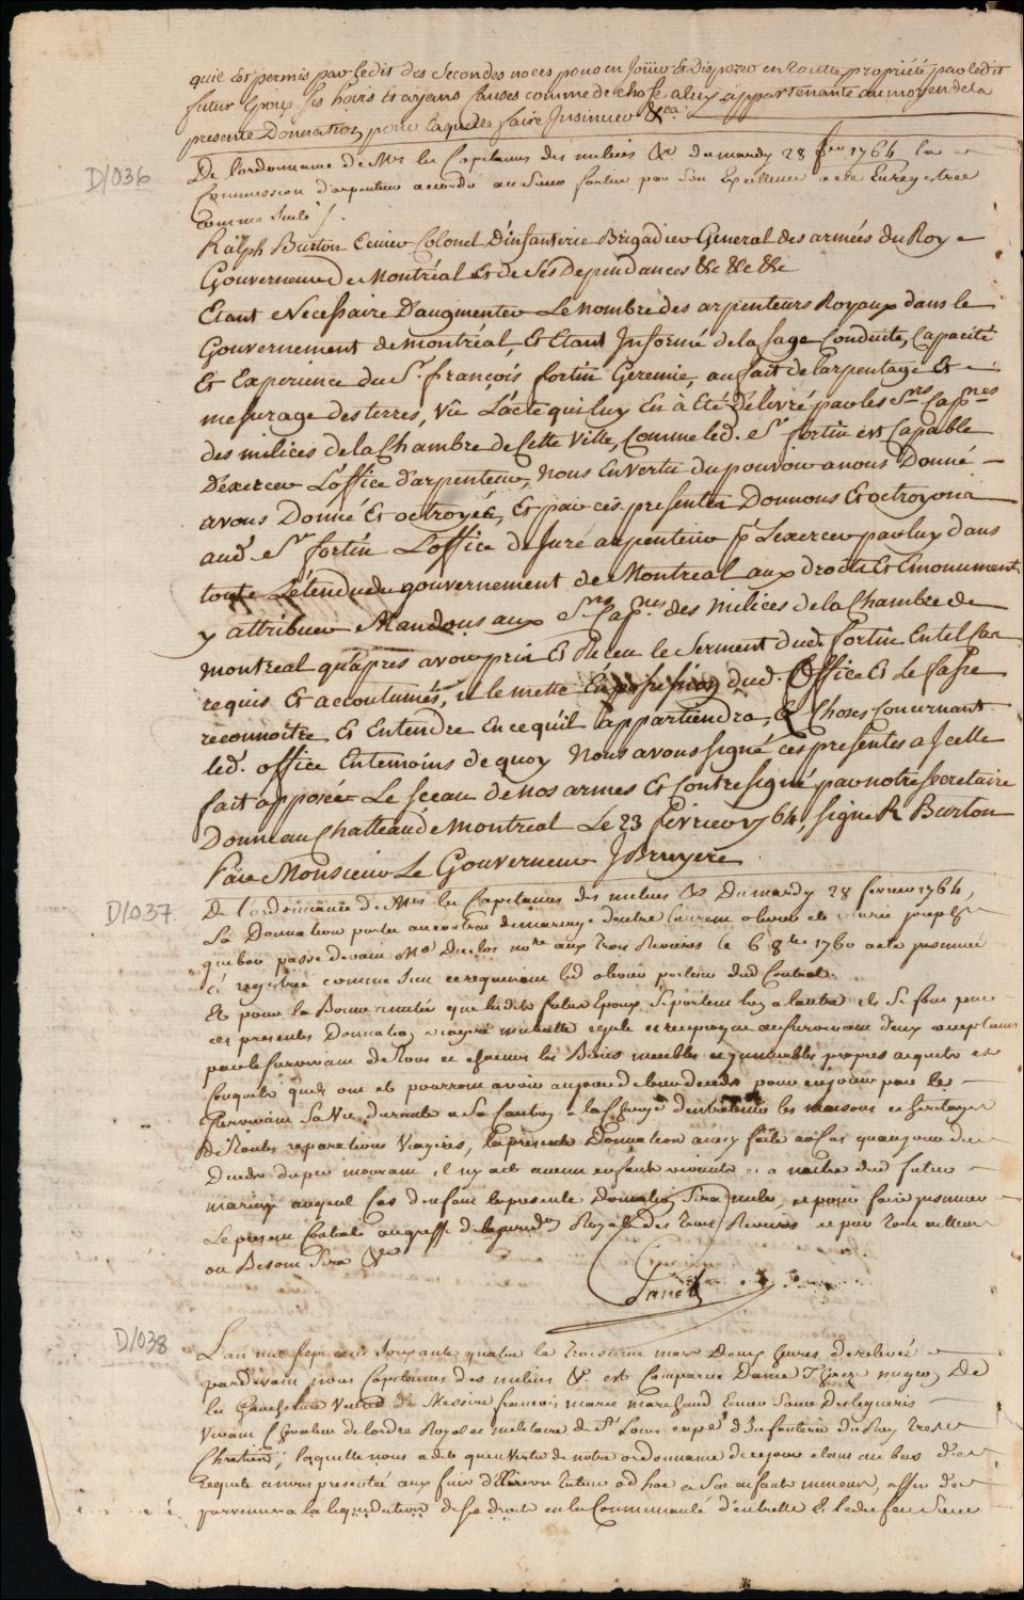 quil est permis par ledit des secondes noces pour en Jouir et Disposer en toutte propriété par ledit
futur Epoux ses hoirs et ayans causes comme de chose a luy appartenante au moyen de la
presente Donnation pour laquelle faire Insinuer &ca
D/036
De l'ordonnance de Mrs les Capitaines des milices &c du mardy 28 fer 1764 la
Commission d'arpenteur accordé au Sieur fortin par Son Excellence a été Enregistrée
comme suit /.
Ralph Burton Ecuier Colonel D'infanterie Brigadier General des armées du Roy
Gouverneur de Montréal et de Ses Dependances &c &c &c
Etant Necessaire D'augmenter Le nombre des arpenteurs Royaux dans le
Gouvernement de montréal, et Etant Informé de la sage Conduite, Capacité
et Experience du Sr. françois fortin Geremie, au fait de l'arpentage et
mesurage des terres, vû L'acte qui luy En à Eté Délivré par les Srs Capnes
des milices de la Chambre de Cette Ville, Comme led. Sr fortin est Capable
D'exercer L'office d'arpenteur, Nous En vertu du pouvoir a nous Donné
avons Donné et octroyée, et par ces presentes Donnons et octroyons
aud. Sr fortin L'office de Juré arpenteur pr Lexercer par luy dans
toute L'étendue du gouvernement de Montreal aux droits et Emonuments
y attribuer Mandons aux Srs Capnes des milices de la Chambre de
montreal qu'apres avoir pris et Reçeu le Serment dud. fortin En tel Cas
requis et accoutumés, ils le mette En possession dud. Office et le fasse
reconnoitre et Entendre En ce qu'il appartiendra, Es Choses Concernant
led. office En temoins de quoy Nous avons signé ces presentes a jcelle
fait apposée Le sceau de nos armes et Contresigné par notre secretaire
Donné au Chatteau de Montréal Le 23 fevrier 1764, signé R Burton
Par Monsieur Le Gouverneur J Bruyere
D/037
De l'ordonnance de Mrs les Capitaines des milices &c Du mardy 28 fevrier 1764,
La Donnation portée au contrat de mariage d'entre Laurent olivier et marie joseph
passé devant Me Duclos nore aux trois Rivieres le 6 8bre 1760 a été insinuée
& registrée comme suit ce requerant led olivier porteur dud Contrat.
Et pour la Bonne amitié que lesdits futur Epoux Se portent luy a l'autre ils Se font par
ces presentes Donnation viagere mutuelle egale et reciproque au survivant d'eux acceptant
par le survivant de tous et chacuns les Biens meubles et jmmeubles propres acquets et
Conquets quils ont et pourront avoir au jour de leur deceds pour en jouir par le
survivant Sa Vie durante a Sa Caution a la charge d'entretenir les maisons et heritages
de toutes reparations Viageres, la presente Donnation ainsy faite au cas quau jour du
Deceds du pre mourant il ny ait aucun enfants vivants ni a naitre dud futur
mariage auquel Cas d'enfant la presente Donation Sera nulle, et pour faire jnsinuer
Le present Contrat au greffe de la jurid.on Royale des trois Rivieres et par tout ailleurs
ou Besoin Sera &c
Panet
D/038
L'an mil sept cent Soixante quatre le troisieme mars Deux heures de relevée
pardevant nous Capitaines des milices &c. est Comparue Dame
Veuve de Messire francois marie marchand Ecuier Sieur Desligneris
Vivant Chevalier de lordre Royal et militaire de St Louis d'Infanterie du Roy tres
Chretien, laquelle nous a dit quen Vertu de notre ordonnance de ce jour etant au bas d'une
requete a nous presentée aux fins d'Elire un tuteur ad hoc a Ses enfants mineurs, affin de
parvenir a la liquidation de ses droits en la Communauté d'entre elle & ledit feu Sieur